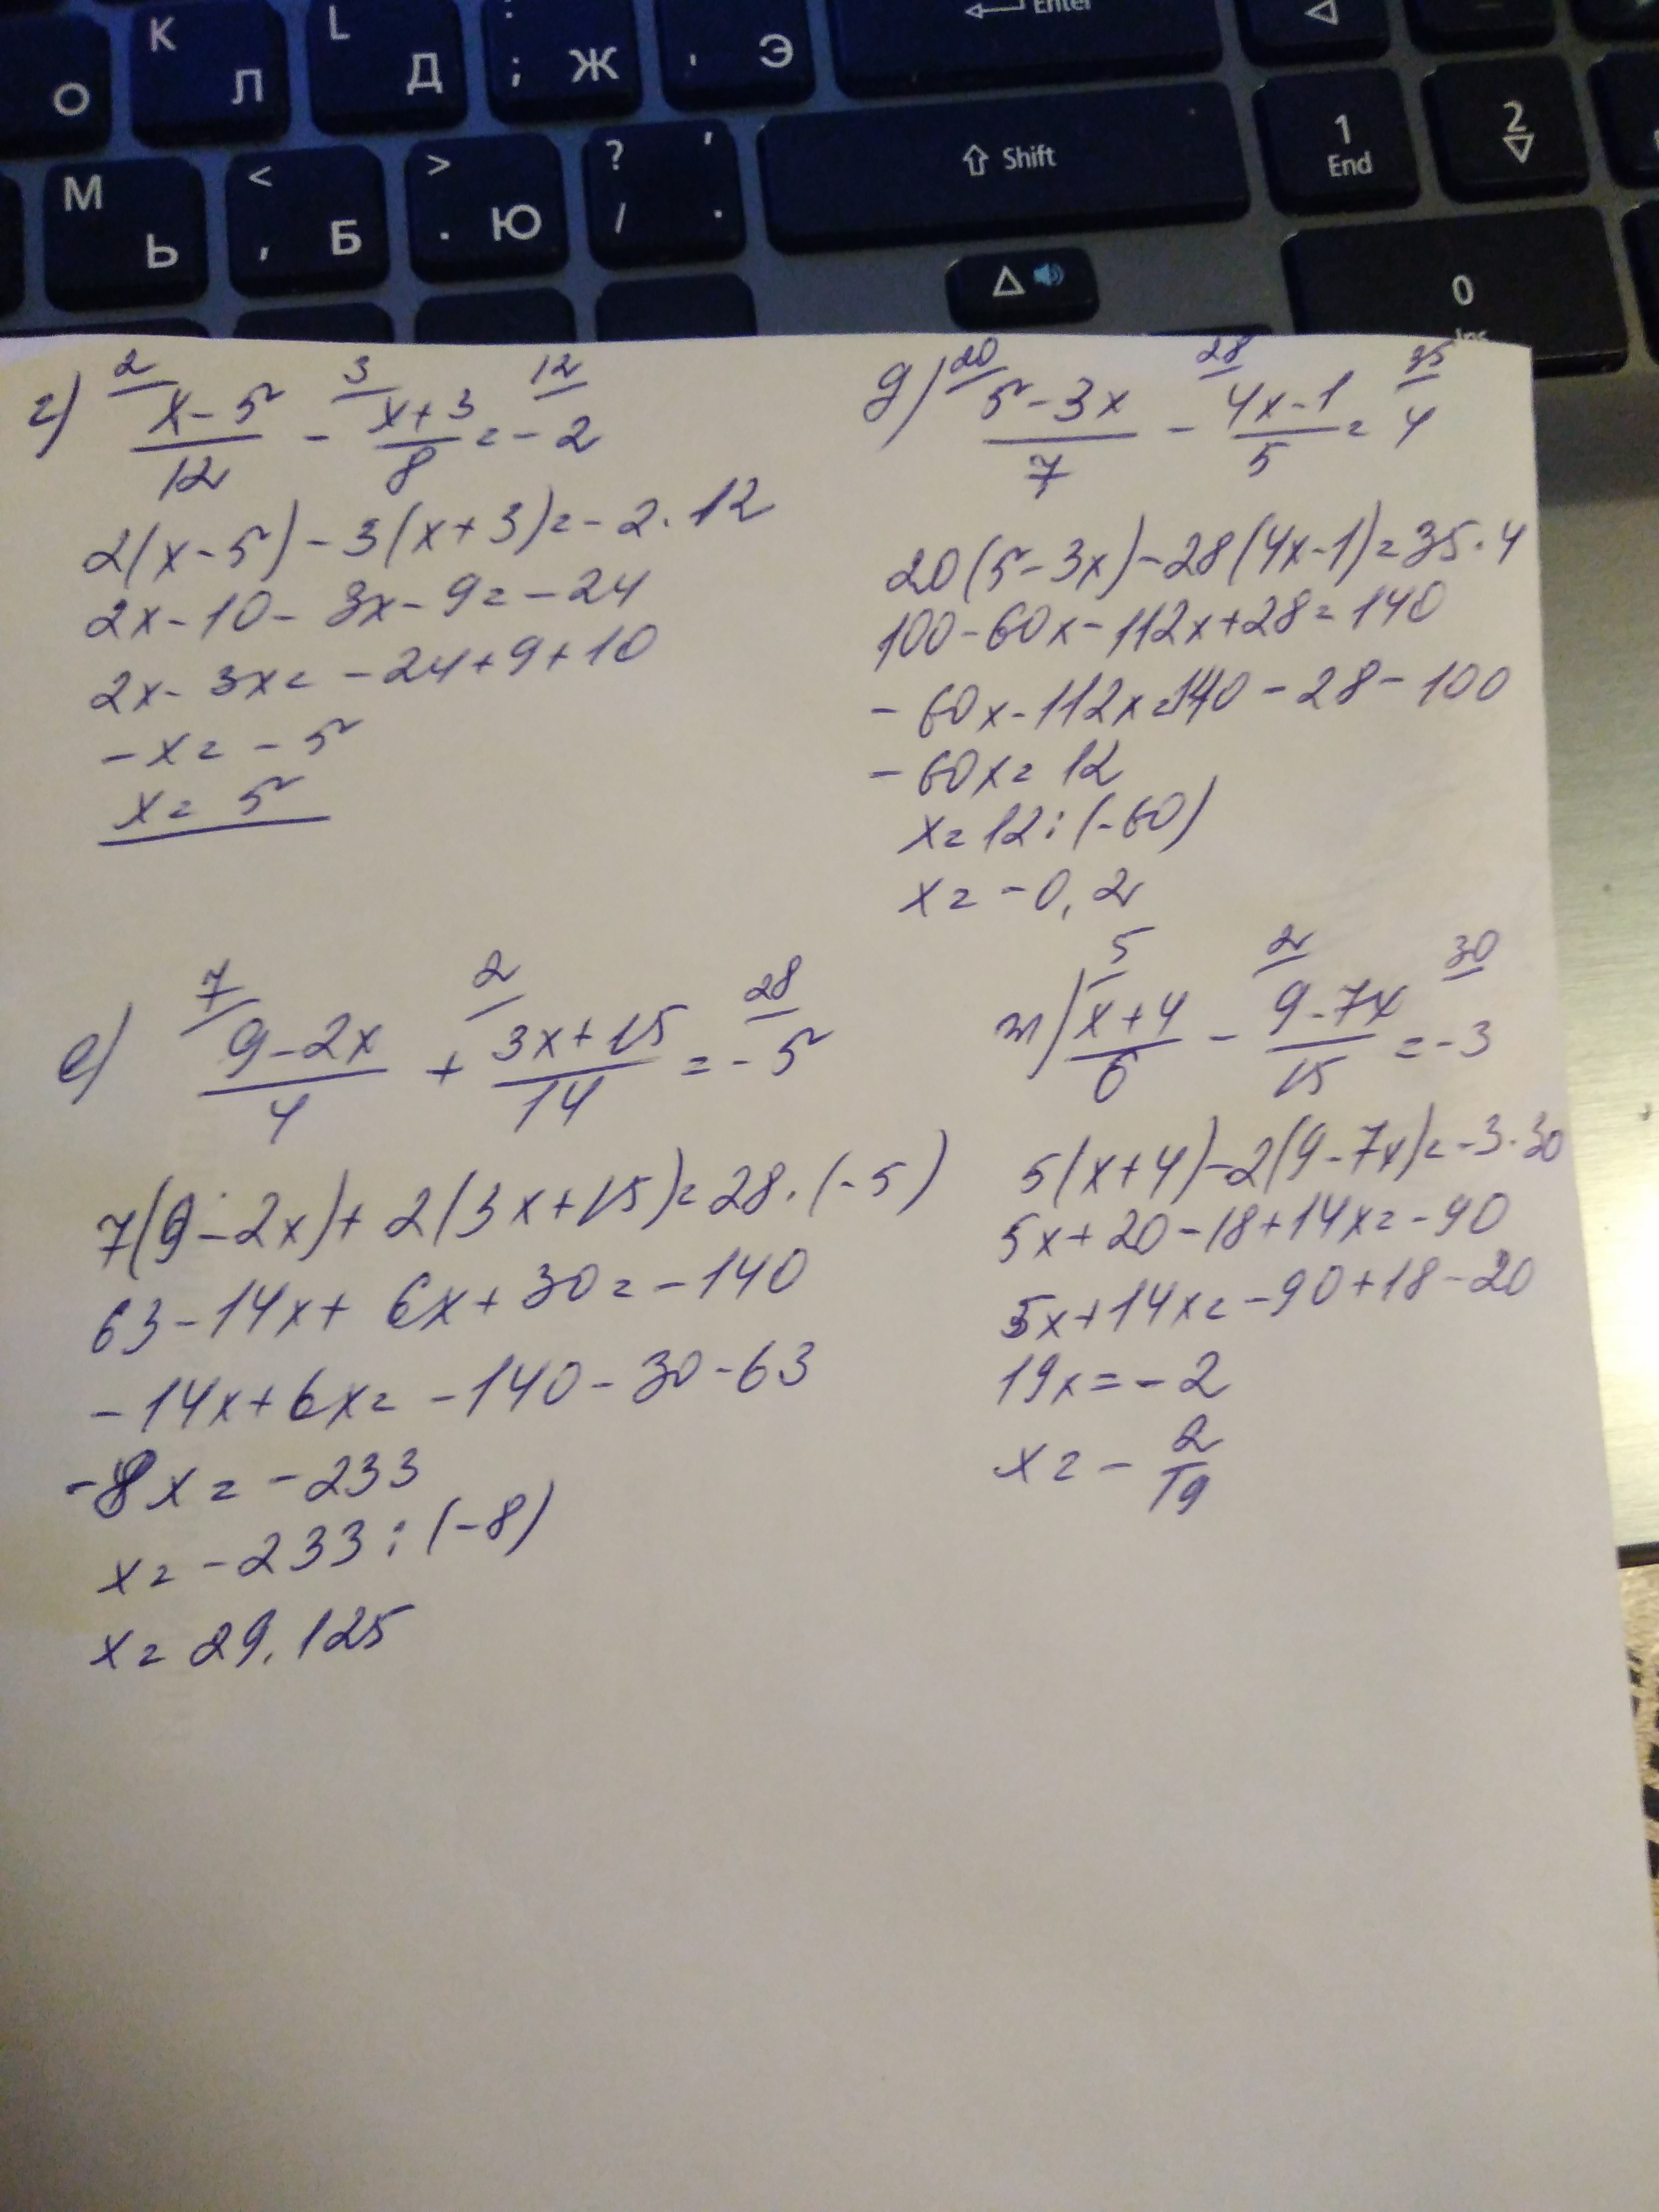 K
Л
О
L
Д
:
; Ж
' Э
Enter
М
Ь
<
, Б
>
. Ю
? '
/ .
Shift
1
End
2
0
Ins
г) 2 3 12
x-5/12 - x+3/8 = -2
2(x-5)-3(x+3)=-2·12
2x-10-3x-9=-24
2x-3x=-24+9+10
-x=-5
x=5
д) 20 28 35
5-3x/7 - 4x-1/5 = 4
20(5-3x)-28(4x-1)=35·4
100-60x-112x+28=140
-60x-112x=140-28-100
-60x=12
x=12:(-60)
x=-0,2
е) 7 2 28
9-2x/4 + 3x+15/14 = -5
7(9-2x)+2(3x+15)=28·(-5)
63-14x+6x+30=-140
-14x+6x=-140-30-63
-8x=-233
x=-233:(-8)
x=29,125
ж) 5 2 30
x+4/6 - 9-7x/15 = -3
5(x+4)-2(9-7x)=-3·30
5x+20-18+14x=-90
5x+14x=-90+18-20
19x=-2
x=-2/19